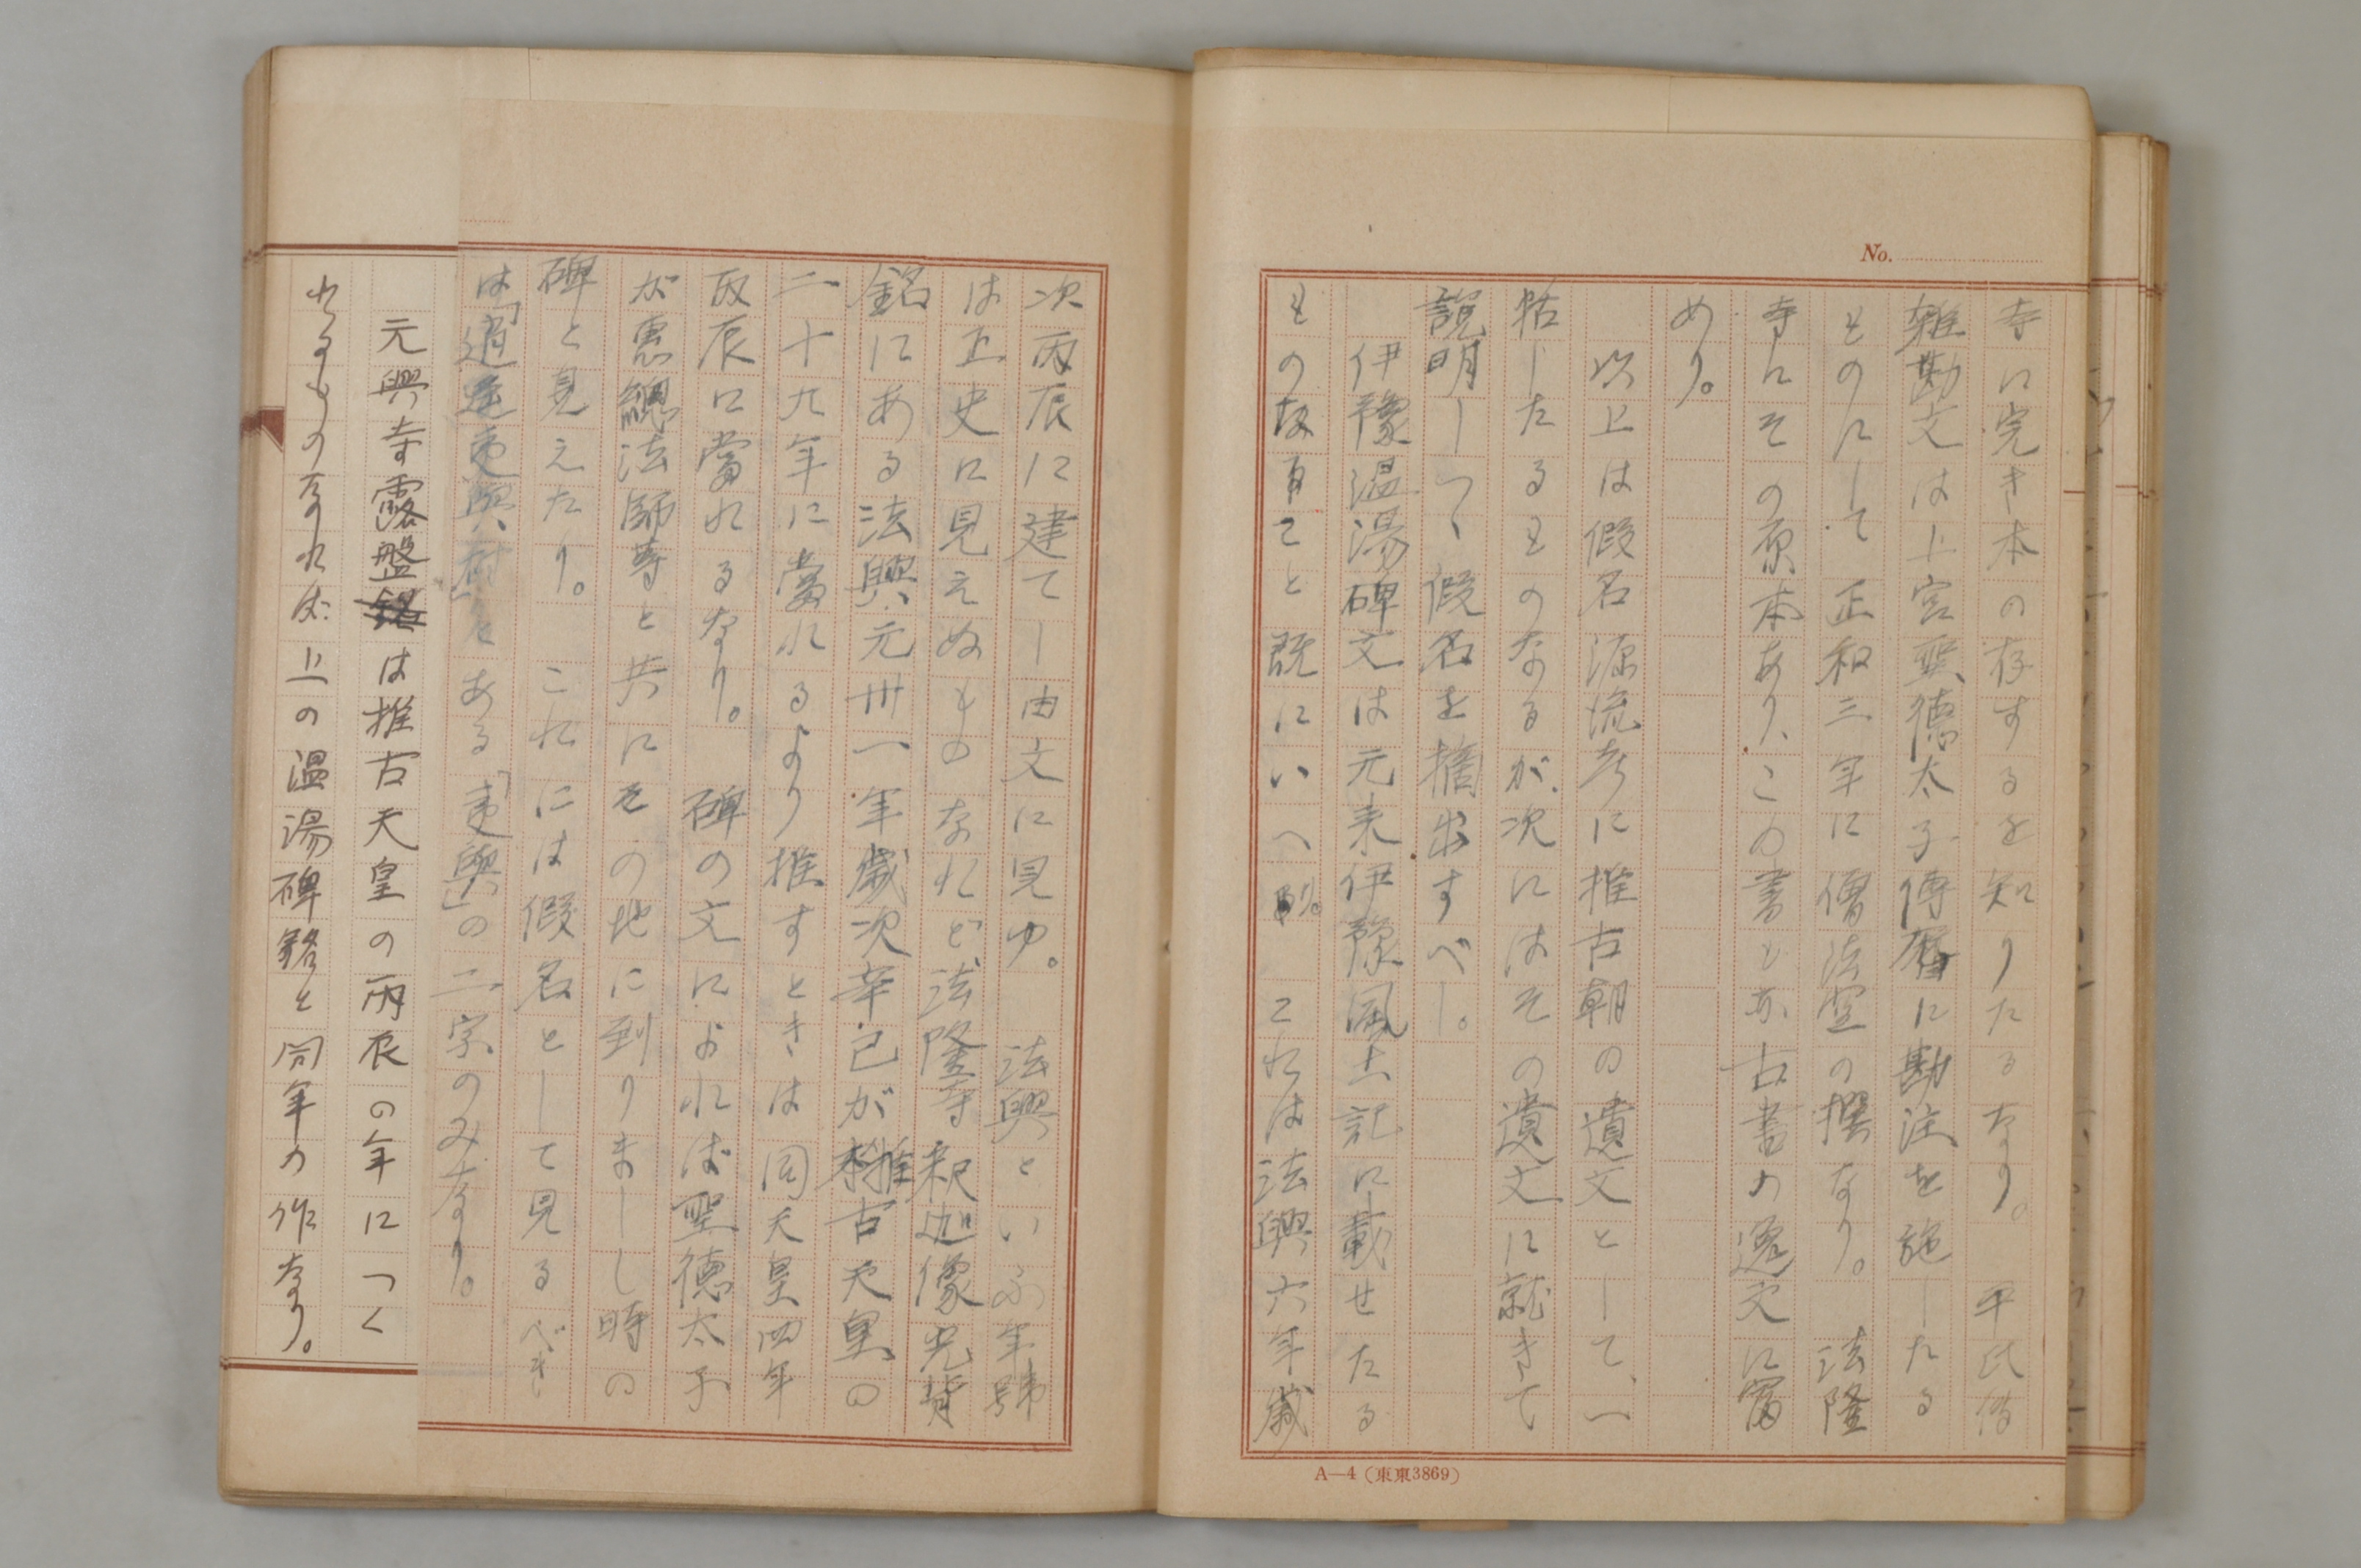 No.
寺に完き本の存するを知りたるなり。　平氏傳
雜勘文は上宮聖德太子傳曆に勘注を施したる
ものにして正和三年に僧法空の撰なり。　法隆
寺にその原本あり、この書も亦古書の逸文に富
めり。
以上は假名源流考に推古朝の遺文として、一
括したるものなるが、次にはその遺文に就きて
說明しつゝ假名を摘出すべし。
伊豫温湯碑文は元来伊豫風土記に載せたる
もの　ること既にいへり。　これは法興六年歲
次丙辰に建てし由文に見ゆ。　法興といふ年號
は正史に見えぬものなれど法隆寺釈迦像光背
銘にある法興元卅一年歲次辛巳が推古天皇の
二十九年に當れるより推すときは同天皇四年
丙辰に當れるなり。　碑の文によれば聖德太子
が惠緫法師等と共にその地に到りましし時の
碑と見えたり。　これには假名として見るべき
は「逍遥夷與村」とある「夷與」の二字のみなり。
元興寺露盤は推古天皇の丙辰の年につく
れるものなれば上の温湯碑銘と同年の作なり。
A—4（東東3869）